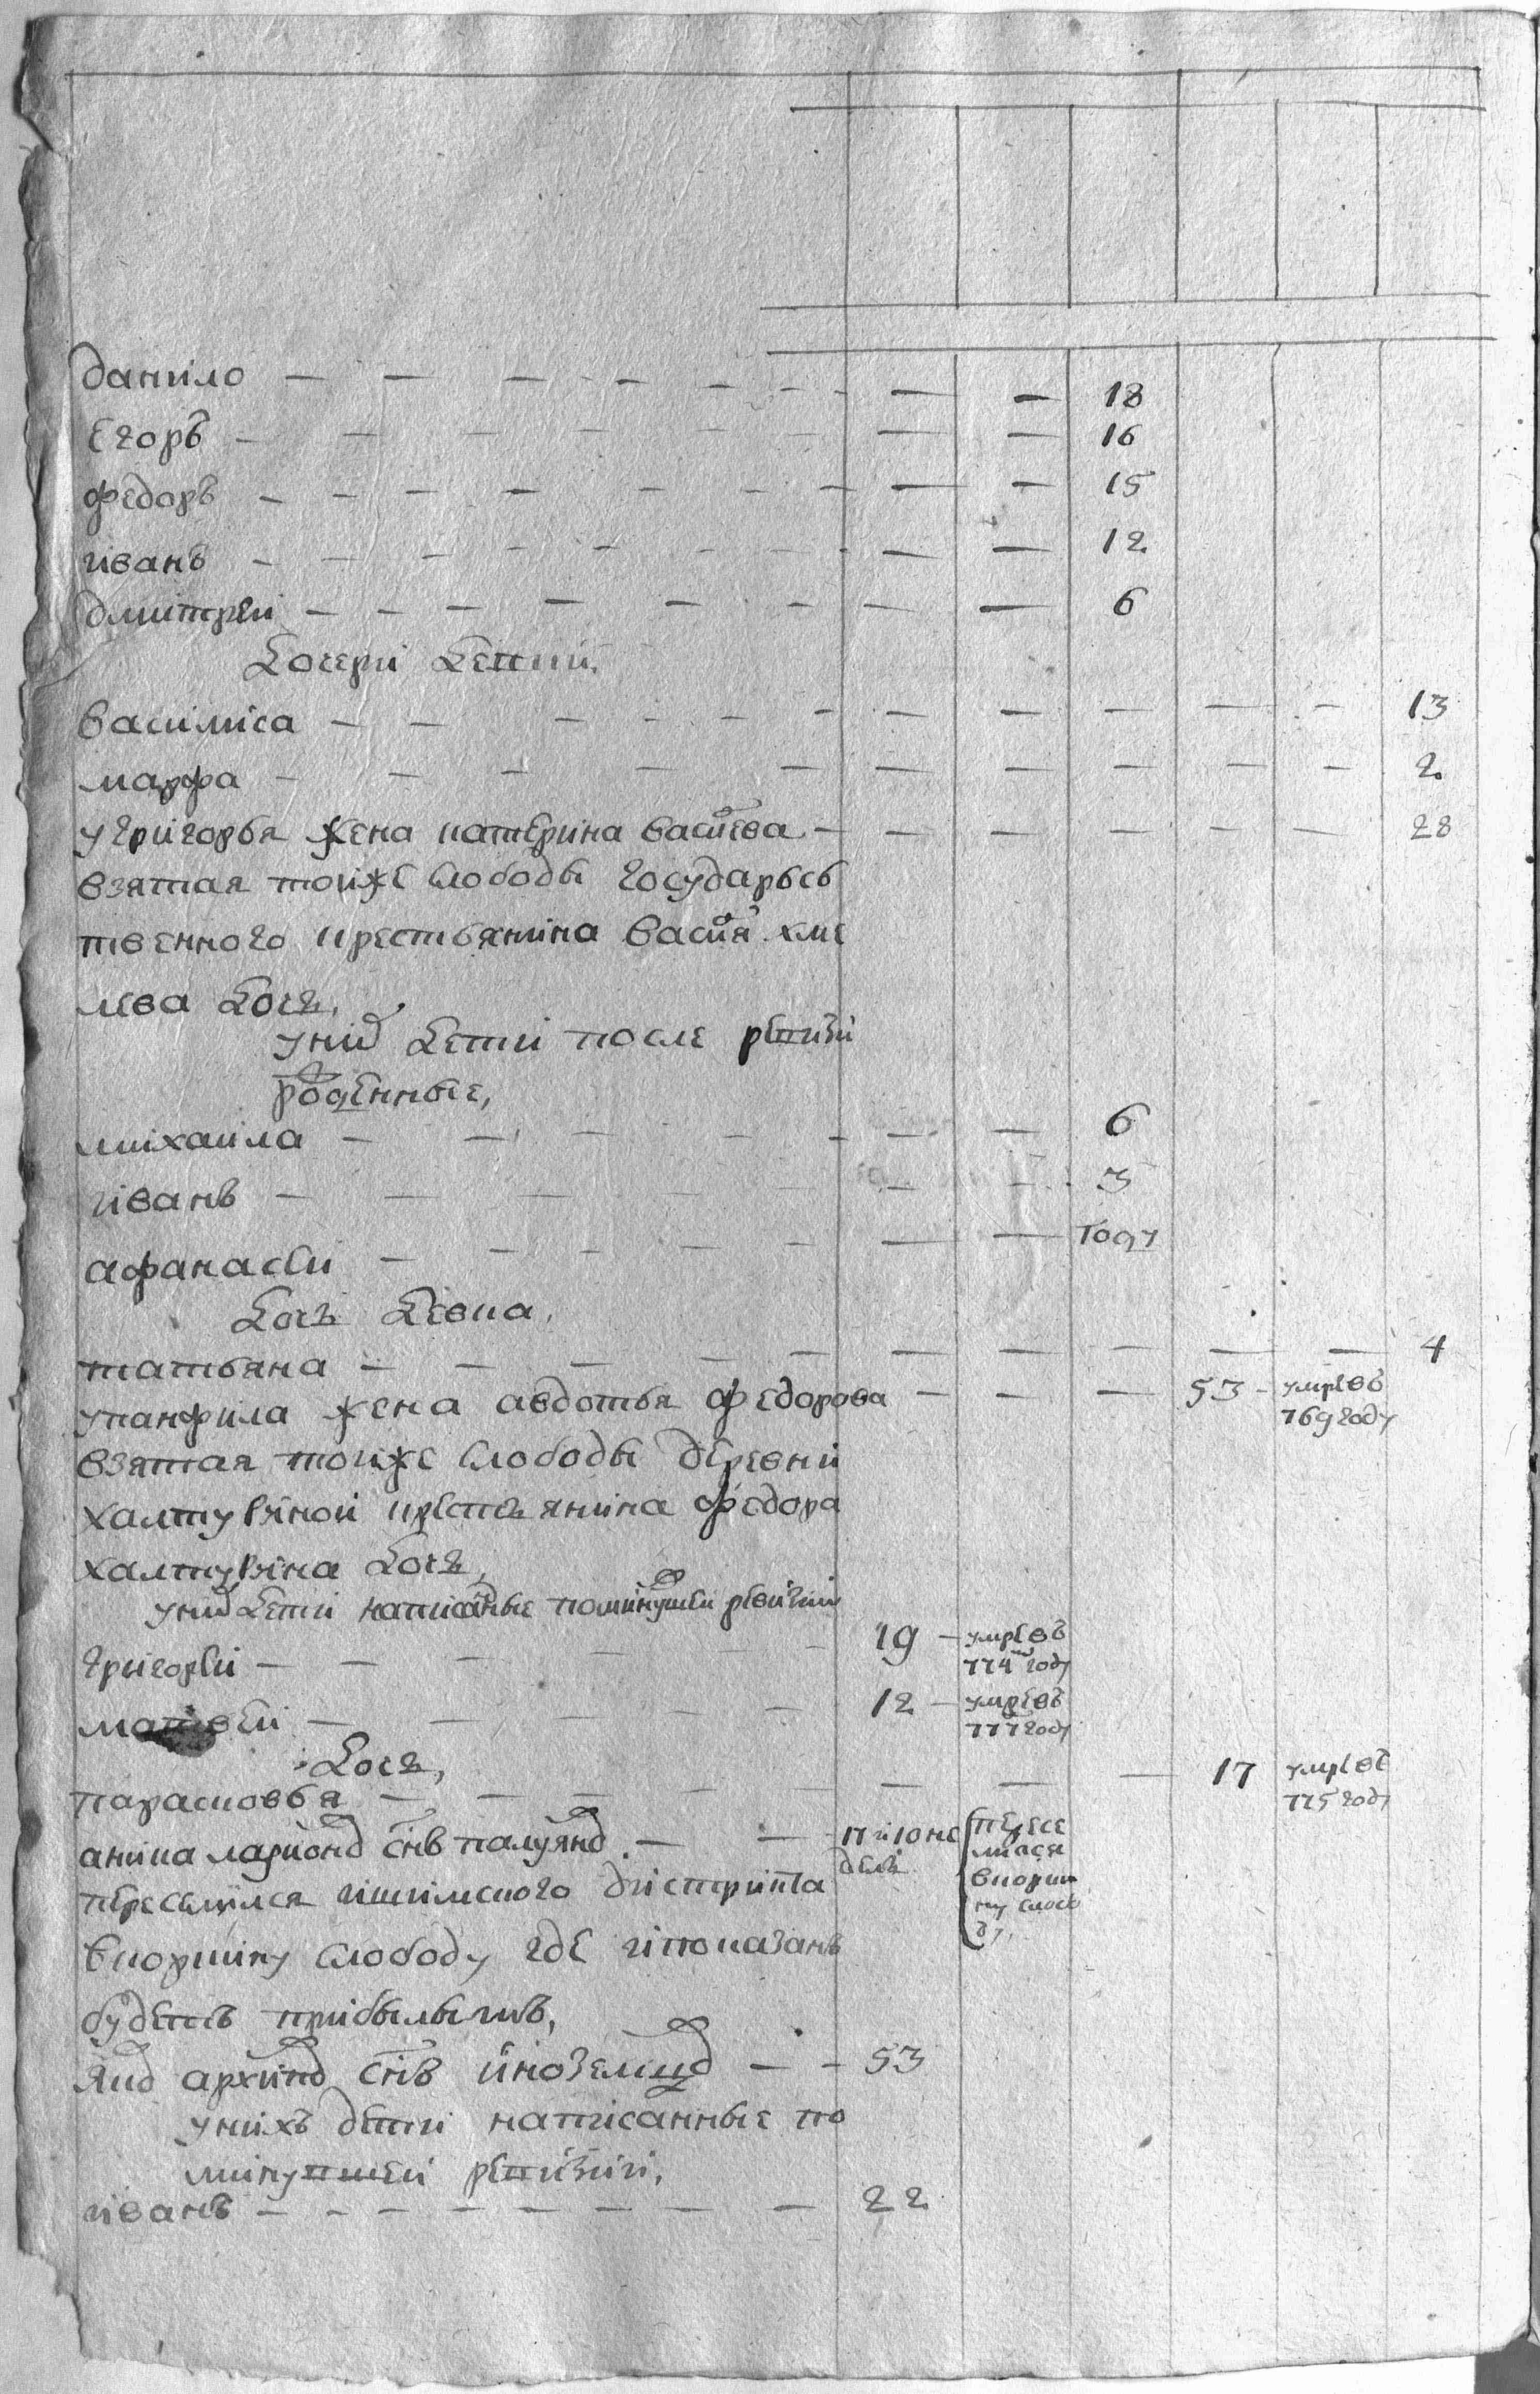 данило — — — — — — — — 18
Егоръ — — — — — — — — 16
федоръ — — — — — — — — 15
иванъ — — — — — — — — 12
дмитреи — — — — — — — — 6
Дочери Девки
василиса — — — — — — — — — — — 13
марфа — — — — — — — — — — 2
у григорья жена катерина васильева — — — — — — 28
взятая тоиже слободы государьсь
твенного крестьянина василья хме
лева Дочь,
у них Дети после ревизи
рожденные,
михаила — — — — — — — 6
иванъ — — — — — — — 3
афанасеи — — — — — — — году
Дочь Девка,
татьяна — — — — — — — — — — 4
у панфила жена авдотья федорова — — — 53 — умре въ 769 году
взятая тоиже слободы деревни
халтуриной крестьянина федора
халтурина Дочь,
у них Дети написанные по минувшеи ревизии
григореи — — — — — 19 — умре въ 774м году
матвеи — — — — — 12 — умре въ 777 году
Дочь,
парасковья — — — — — — — — 17 умре въ 775 году
аника ларионов снъ полуянов — — 17 и 10 не дель пересе лился в корки ну слобо ду,
переселился ишимского дистрикта
в коркину слободу где и показанъ
будетъ прибылымъ,
Яков архипов снъ иноземцов — — 53
у нихъ дети написанные по
минувшеи ревизии,
иванъ — — — — — — — 22